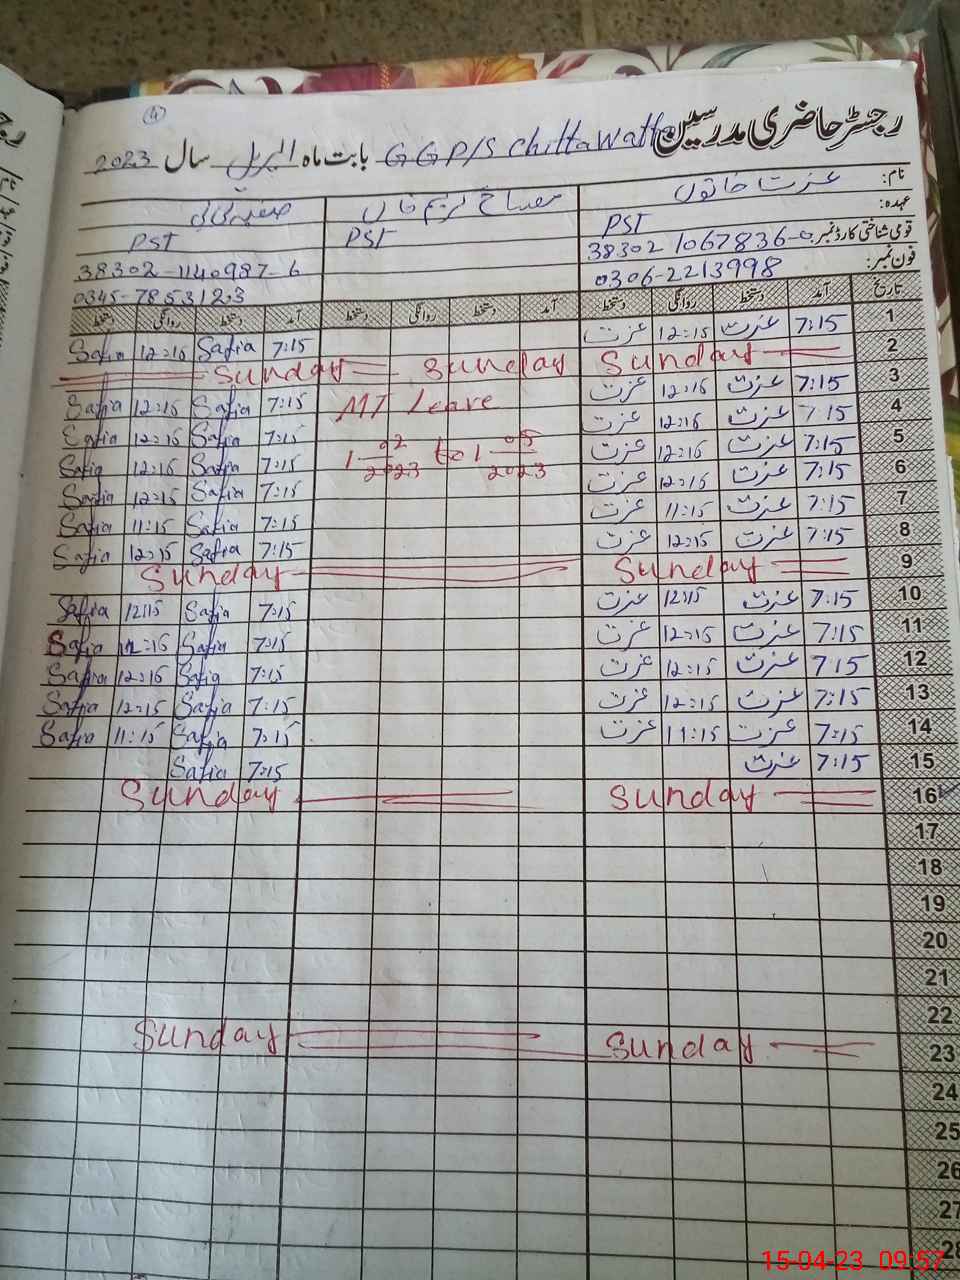 4
رجسٹر حاضری مدرسین GGP/S Chitta Watta بابت ماہ اپریل سال 2023
نام: عزت خاتون صفیہ بی بی
عہدہ: PST PST PST
قومی شناختی کارڈ نمبر: 38302-1140987-6
فون نمبر: 0306-2213998 0345-7853123
تاریخ آمد دستخط روانگی دستخط آمد دستخط روانگی دستخط آمد دستخط روانگی دستخط
1 7:15 عزت 12:15 عزت 7:15 Safia 12:15 Safia
2 Sunday Sunday Sunday
3 7:15 عزت 12:15 عزت MT Leave 7:15 Safia 12:15 Safia
4 7:15 عزت 12:15 عزت 7:15 Safia 12:15 Safia
5 7:15 عزت 12:15 عزت 1 02 2023 to 1 05 2023 7:15 Safia 12:15 Safia
6 7:15 عزت 12:15 عزت 7:15 Safia 12:15 Safia
7 7:15 عزت 11:15 عزت 7:15 Safia 11:15 Safia
8 7:15 عزت 12:15 عزت 7:15 Safia 12:15 Safia
9 Sunday Sunday
10 7:15 عزت 12:15 عزت 7:15 Safia 12:15 Safia
11 7:15 عزت 12:15 عزت 7:15 Safia 12:15 Safia
12 7:15 عزت 12:15 عزت 7:15 Safia 12:15 Safia
13 7:15 عزت 12:15 عزت 7:15 Safia 12:15 Safia
14 7:15 عزت 11:15 عزت 7:15 Safia 11:15 Safia
15 7:15 عزت 7:15 Safia
16 Sunday Sunday
17
18
19
20
21
22
23 Sunday Sunday
24
25
26
27
28
15-04-23 09:57